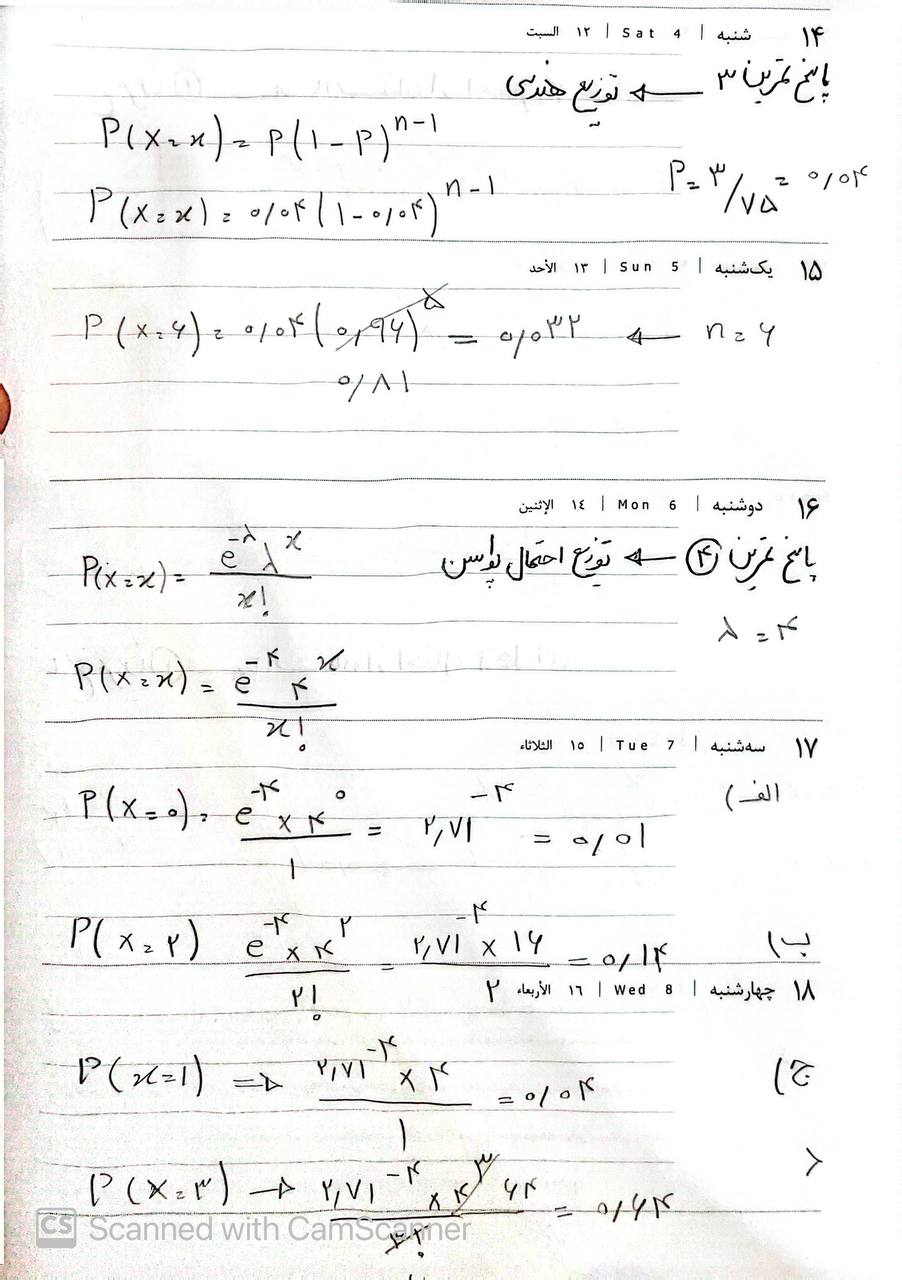 ۱۴ شنبه | Sat 4 | ۱۲ السبت
پاسخ تمرین ۳ ← توزیع هندسی
P(x=x) = P(1-P)^n-1
P = ۳/۷۵ = ۰/۰۴
P(x=x) = ۰/۰۴(۱-۰/۰۴)^n-1
۱۵ یک‌شنبه | Sun 5 | ۱۳ الأحد
n=۶ ←
P(x=۶) = ۰/۰۴(۰,۹۶)^۵ = ۰/۰۳۲
۰/۸۱
۱۶ دوشنبه | Mon 6 | ١٤ الإثنين
پاسخ تمرین ۴ ← توزیع احتمال پواسن
P(x=x) = e^-λ λ^x / x!
λ = ۴
P(x=x) = e^-۴ ۴^x / x!
۱۷ سه‌شنبه | Tue 7 | ۱۵ الثلاثاء
الف)
P(x=۰) = e^-۴ × ۴^۰ / ۱ = ۲,۷۱^-۴ = ۰/۰۱
ب)
P(x=۲) e^-۴ × ۴^۲ / ۲! = ۲,۷۱^-۴ × ۱۶ / ۲ = ۰/۱۴
۱۸ چهارشنبه | Wed 8 | ۱۶ الأربعاء
ج)
P(x=۱) ⇒ ۲,۷۱^-۴ × ۴ / ۱ = ۰/۰۴
د
P(x=۳) → ۲,۷۱^-۴ × ۴^۳ ۶۴ / ۳! = ۰/۶۴
CS Scanned with CamScanner